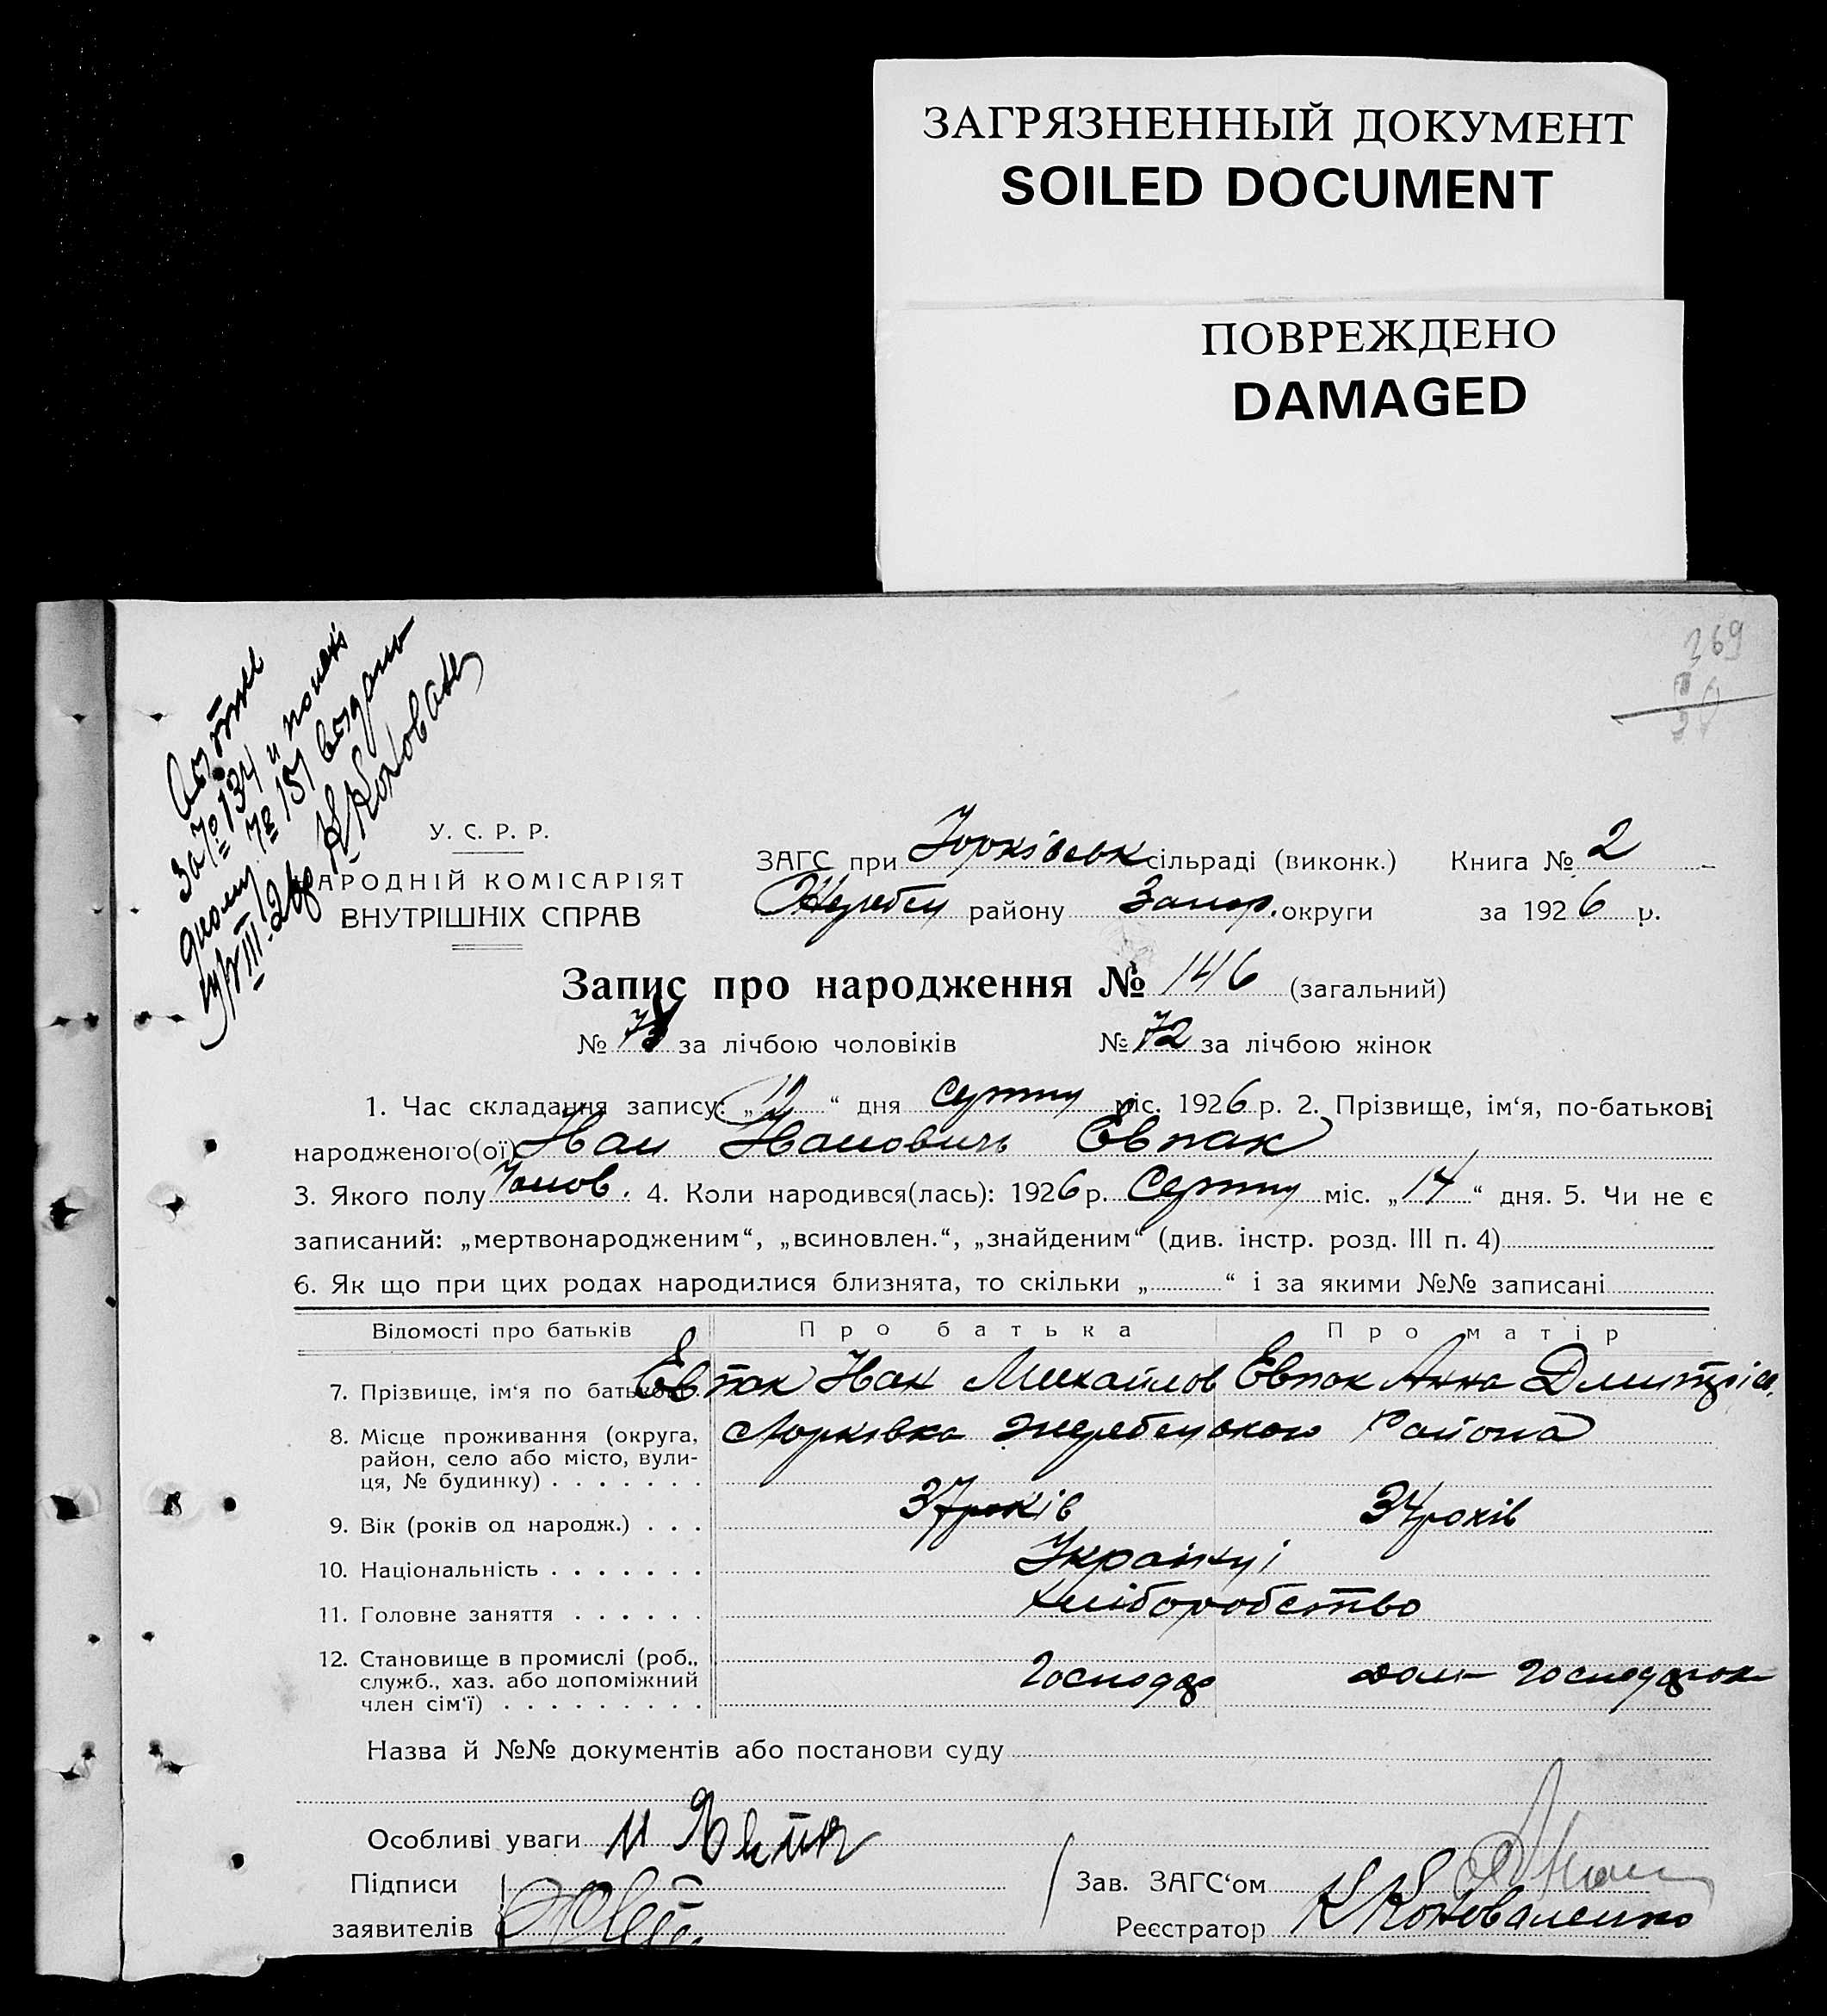 ЗАГРЯЗНЕННЫЙ ДОКУМЕНТ
SOILED DOCUMENT
ПОВРЕЖДЕНО
DAMAGED
369
За № 134 и
№ 151
У. С. Р. Р.
НАРОДНІЙ КОМІСАРІЯТ
ВНУТРІШНІХ СПРАВ
ЗАГС при Юрківськ сільраді (виконк.) Книга № 2
Жеребец району Запор. округи за 1926 р.
Запис про народження № 146 (загальний)
№ за лічбою чоловіків № 72 за лічбою жінок
1. Час складання запису: „12“ дня Серпня міс. 1926 р. 2. Прізвище, ім‘я, по-батькові
народженого(ої) Иван Иванович Евпак
3. Якого полу 4. Коли народився(лась): 1926 р. Серпня міс. „14“ дня. 5. Чи не є
записаний: „мертвонародженим“, „всиновлен.“, „знайденим“ (див. інстр. розд. III п. 4)
6. Як що при цих родах народилися близнята, то скільки „ “ і за якими №№ записані
Відомості про батьків Про батька Про матір
7. Прізвище, ім‘я по батькові. Евпак Иван Михайлов Евпак Анна Дмитрів.
8. Місце проживання (округа, Юрківка Жеребецького Района
район, село або місто, вули-
ця, № будинку) . . . . . . .
9. Вік (років од народж.) . . . 37 років 34 років
10. Національність . . . . . . . Українці
11. Головне заняття . . . . . . хліборобство
12. Становище в промислі (роб.,
служб., хаз. або допоміжний Господар дом господарок
член сім‘ї) . . . . . . . . .
Назва й №№ документів або постанови суду
Особливі уваги
Підписи
Зав. ЗАГС‘ом
заявителів
Реєстратор К Коноваленко